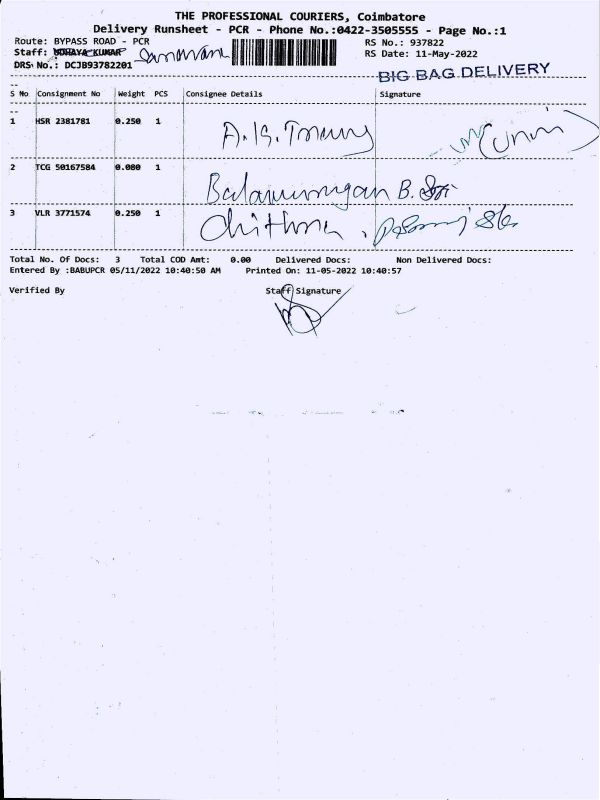 THE PROFESSIONAL COURIERS, Coimbatore
Delivery Runsheet - PCR - Phone No.:0422-3505555 - Page No.:1
Route: BYPASS ROAD - PCR
RS No.: 937822
Staff: UDHAYA KUMAR
RS Date: 11-May-2022
DRS No.: DCJB93782201
BIG BAG DELIVERY
S No Consignment No Weight PCS Consignee Details Signature
1 HSR 2381781 0.250 1 A.G.
2 TCG 50167584 0.080 1 Balamurugan B.
3 VLR 3771574 0.250 1 Chithra
Total No. Of Docs: 3 Total COD Amt: 0.00 Delivered Docs: Non Delivered Docs:
Entered By :BABUPCR 05/11/2022 10:40:50 AM Printed On: 11-05-2022 10:40:57
Verified By Staff Signature